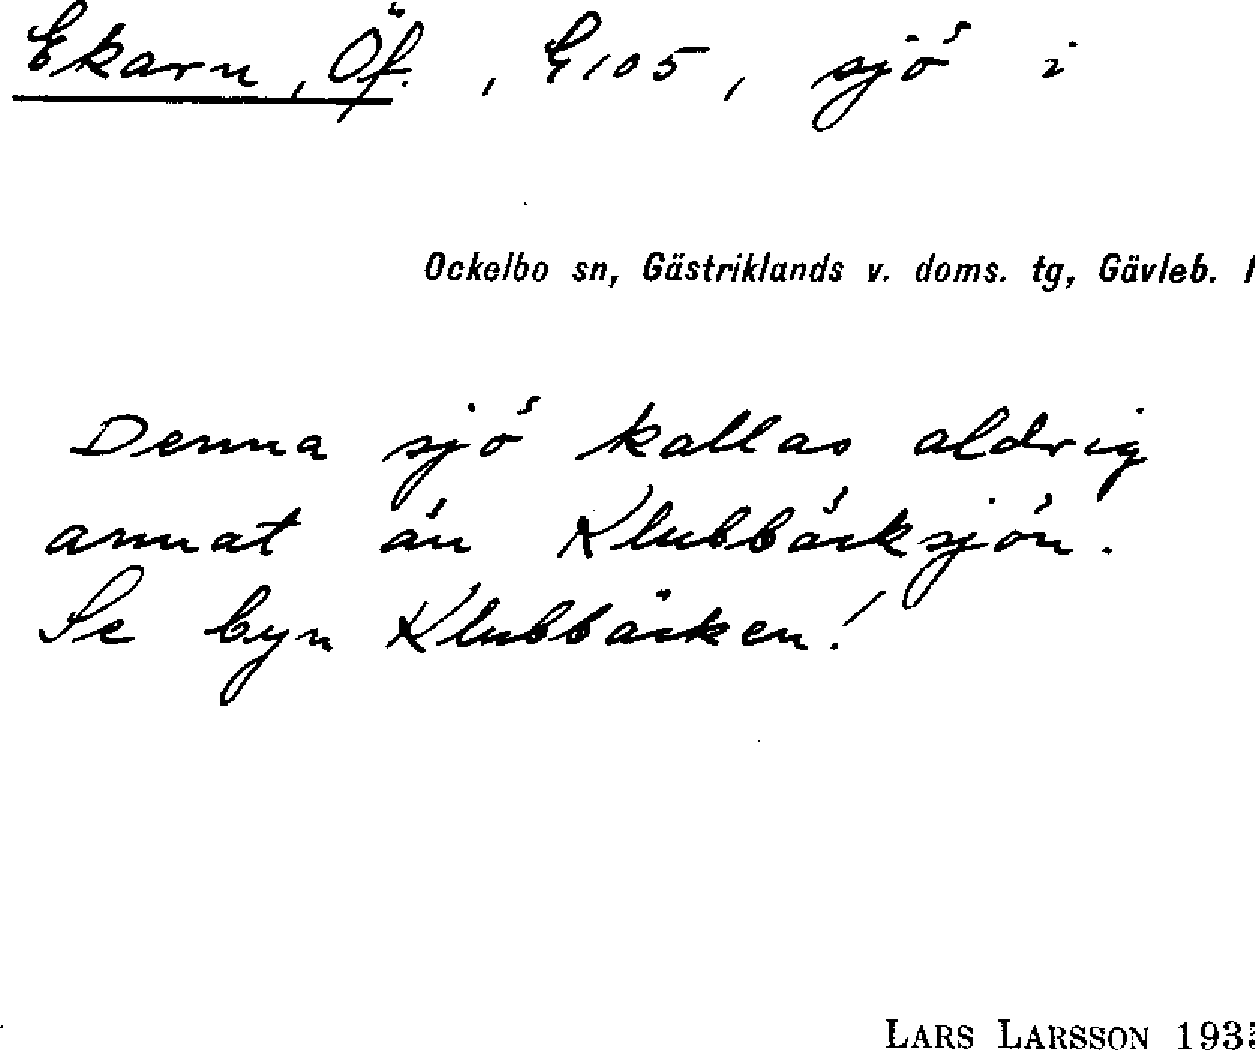 Ekarn, Öf., G 105, sjö i
Ockelbo sn, Gästriklands v. doms. tg, Gävleb.
Denna sjö kallas aldrig
annat än Klubbäcksjön.
Se byn Klubbäcken!
LARS LARSSON